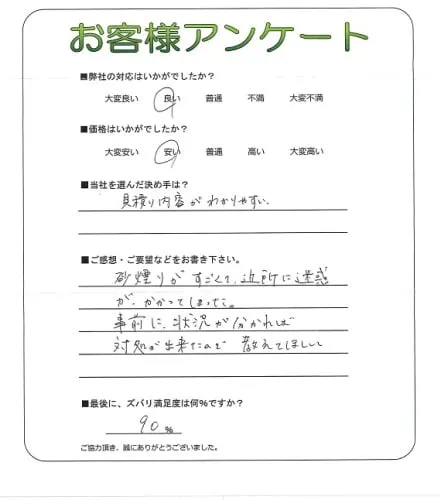 お客様アンケート
■弊社の対応はいかがでしたか?
大変良い 良い 普通 不満 大変不満
■価格はいかがでしたか?
大変安い 安い 普通 高い 大変高い
■当社を選んだ決め手は?
見積り内容がわかりやすい.
■ご感想・ご要望などをお書き下さい。
砂煙りがすごくて、近所に迷惑
が、かかってしまった。
事前に、状況が分かれば
対処が出来たので 教えてほしい
■最後に、ズバリ満足度は何%ですか?
90 %
ご協力頂き、誠にありがとうございました。